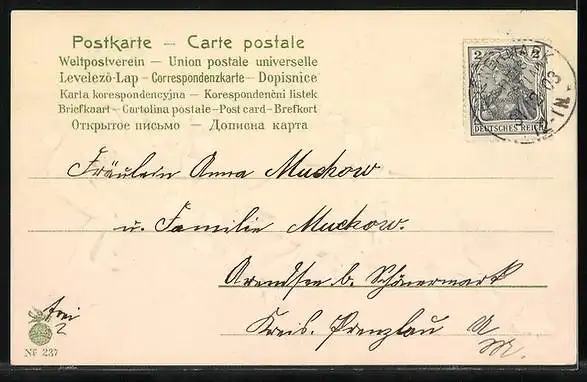 Postkarte – Carte postale
Weltpostverein – Union postale universelle
Levelező-Lap – Correspondenzkarte – Dopisnice
Karta korespondencyjna – Korespondenční listek
Briefkaart – Cartolina postale – Post card – Brefkort
Открытое письмо – Дописна карта
2 2
DEUTSCHES REICH
03
Fräulein Anna Muckow
u. Familie Muckow.
Arendsee b. Schönermark
Kreis. Prenzlau U
M.
frei
Nº 237